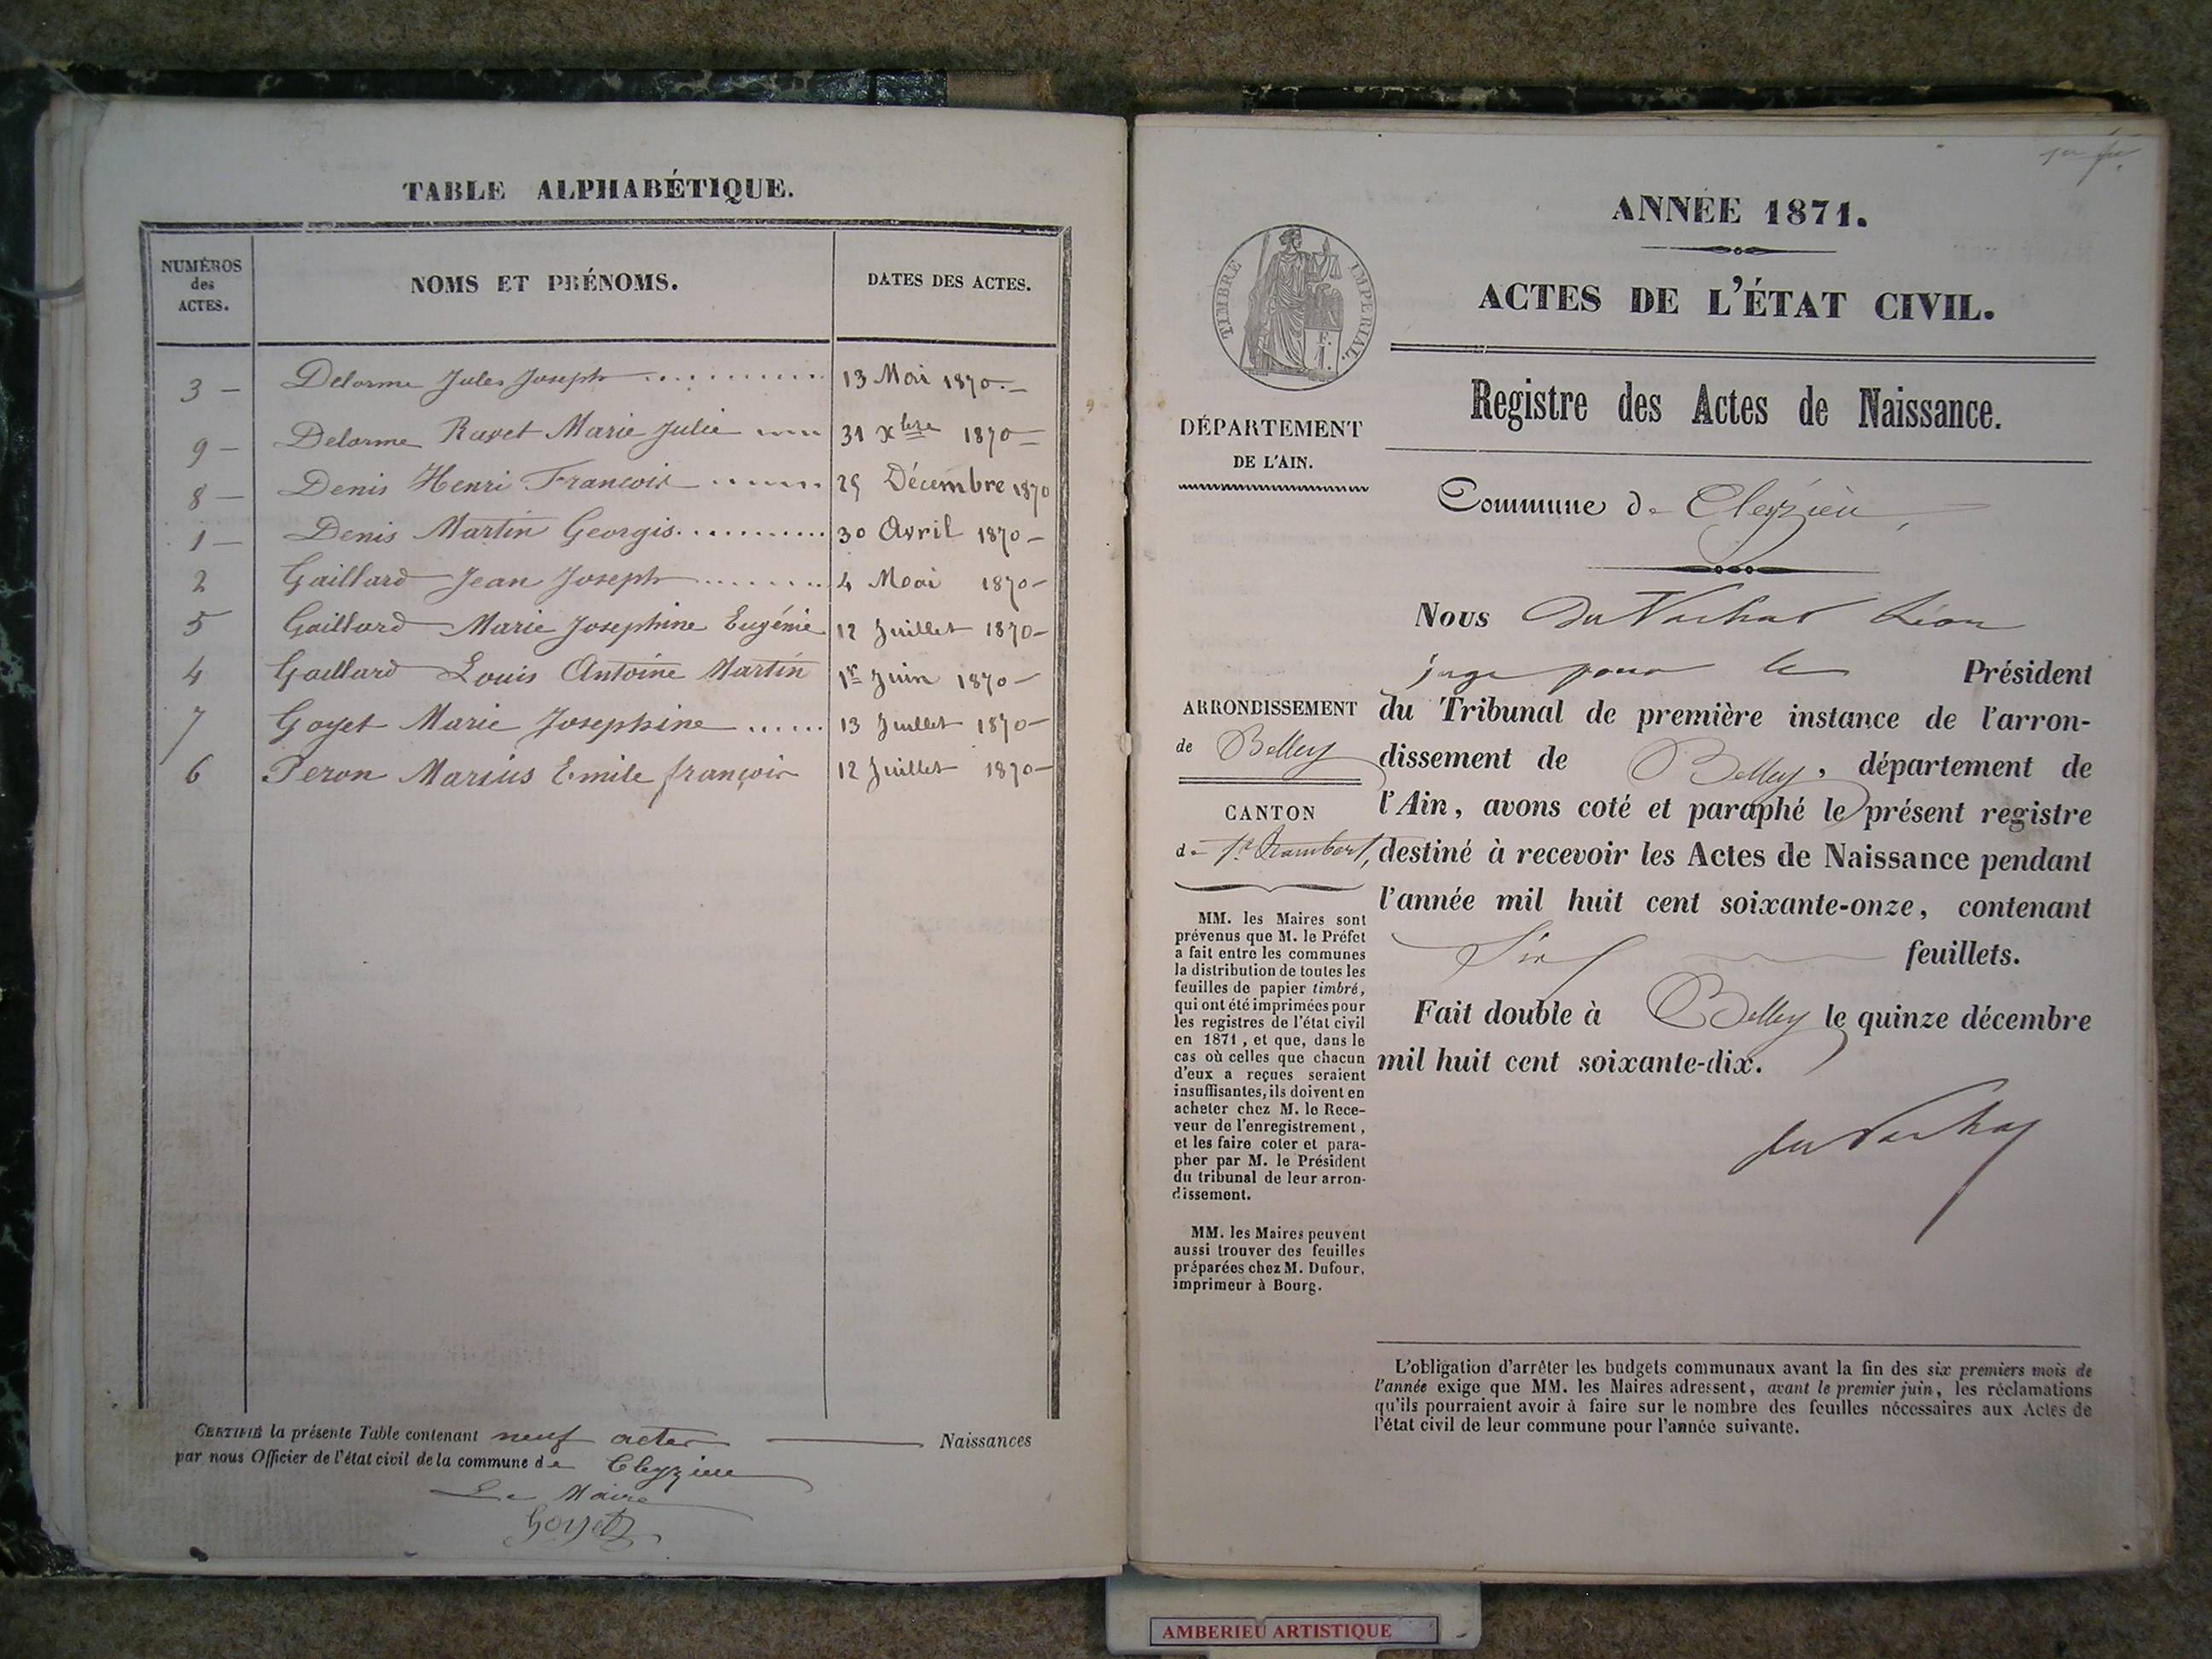 TABLE ALPHABÉTIQUE.
NUMÉROS des ACTES.
NOMS ET PRÉNOMS.
DATES DES ACTES.
3 — Delorme Jules Joseph .......... 13 Mai 1870 —
9 — Delorme Ravet Marie Julie .... 31 Xbre 1870 —
8 — Denis Henri François ...... 25 Décembre 1870
1 — Denis Martin Georgis ........... 30 Avril 1870 —
2 Gaillard Jean Joseph ........ 4 Mai 1870 —
5 Gaillard Marie Josephine Eugénie 12 Juillet 1870 —
4 Gaillard Louis Antoine Martin 1er Juin 1870 —
7 Goyet Marie Josephine ...... 13 Juillet 1870 —
6 Peron Marius Emile françois 12 Juillet 1870 —
CERTIFIÉ la présente Table contenant neuf actes — Naissances
par nous Officier de l'état civil de la commune de Cleyzieu
Le Maire
Goyet
1er
ANNÉE 1871.
TIMBRE IMPÉRIAL.
1 F.
ACTES DE L'ÉTAT CIVIL.
Registre des Actes de Naissance.
DÉPARTEMENT
DE L'AIN.
Commune de Cleyzieu,
Nous Du Vachat Léon
juge pour le Président
du Tribunal de première instance de l'arron-
dissement de Belley, département de
l'Ain, avons coté et paraphé le présent registre
destiné à recevoir les Actes de Naissance pendant
l'année mil huit cent soixante-onze, contenant
Six feuillets.
Fait double à Belley le quinze décembre
mil huit cent soixante-dix.
du Vachat
ARRONDISSEMENT
de Belley
CANTON
de St Rambert,
MM. les Maires sont
prévenus que M. le Préfet
a fait entre les communes
la distribution de toutes les
feuilles de papier timbré,
qui ont été imprimées pour
les registres de l'état civil
en 1871, et que, dans le
cas où celles que chacun
d'eux a reçues seraient
insuffisantes, ils doivent en
acheter chez M. le Rece-
veur de l'enregistrement,
et les faire coter et para-
pher par M. le Président
du tribunal de leur arron-
dissement.
MM. les Maires peuvent
aussi trouver des feuilles
préparées chez M. Dufour,
imprimeur à Bourg.
L'obligation d'arrêter les budgets communaux avant la fin des six premiers mois de
l'année exige que MM. les Maires adressent, avant le premier juin, les réclamations
qu'ils pourraient avoir à faire sur le nombre des feuilles nécessaires aux Actes de
l'état civil de leur commune pour l'année suivante.
AMBERIEU ARTISTIQUE